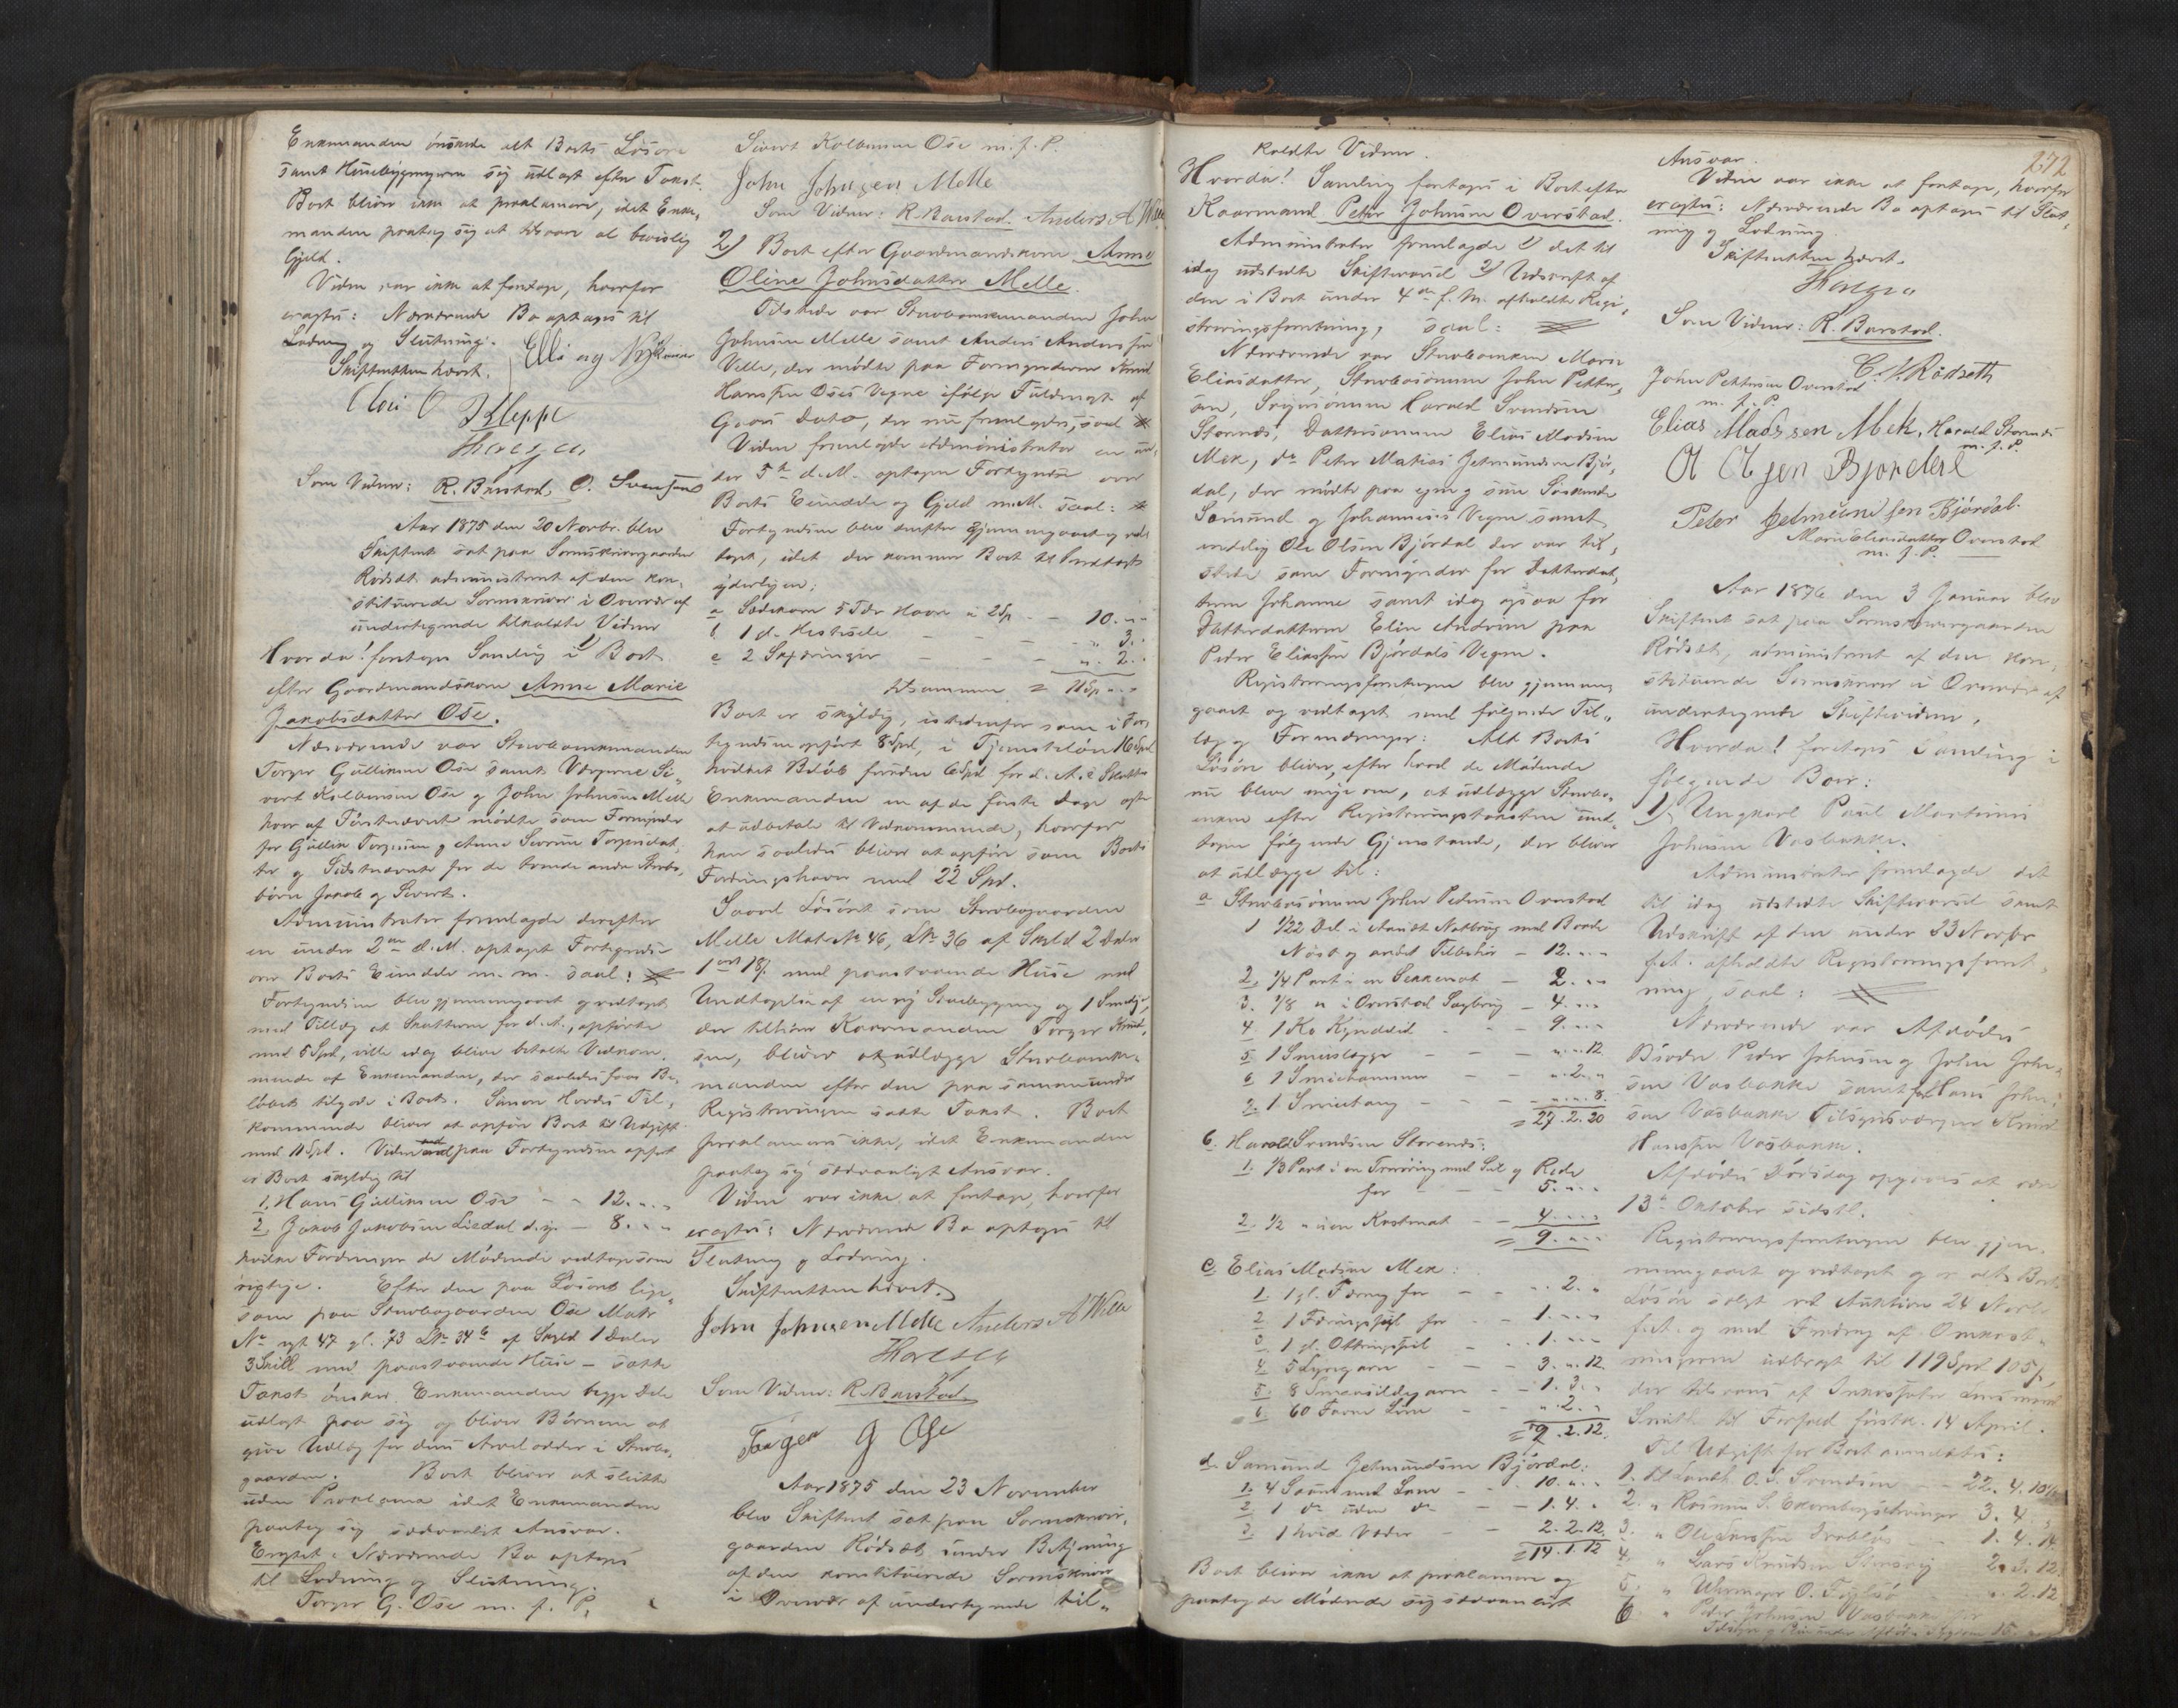 Enkemanden ønskede alt Boets Løsøre
samt Huusebygningerne sig udlagt efter Taxst.
Boet bliver ikke at proklamere, idet Enke-
manden paatog sig at tilsvare al beviislig
Gjeld.
Videre var ikke at foretage, hvorfor
eragtes: Nærværende Bo optages til
Lodning og Slutning.
Skifteretten hævet.
Elli ag
Kleppe
Som Vidner: R. Barstad. O. Svensen
Aar 1875 den 20 Novbr. blev
Skifteret sat paa Sorenskrivergaarden
Rødsæt administreret af den kon-
stituerede Sorenskriver i Overvær af
undertegnede tilkaldte Vidner
Hvorda! foretoges Samling i 1) Boet
efter Gaardmandskone Anne Marie
Jakobsdatter Ose.
Nærværende var Stervboenkemanden
Torger Gulliksen Ose samt Værgerne Si-
vert Kolbensen Ose og John Johnsen Melle
hvor af Førstnævnte mødte som Formynder
for Gullik Torgersen og Anne Severine Torgersdat-
ter og Sidstnævnte for de tvende andre Stervbo-
børn Jakob og Sivert.
Administrator fremlagde derefter
en under 2den d.M. optaget Fortegnelse
over Boets Eiendele m. m. saal:
Fortegnelsen blev gjennemgaaet og vedtaget
med Tillæg at Skatterne for d.A., opførte
med 5 Spd, ville idag blive betalte Vedkom-
mende af Enkemanden, der saaledes faar Be-
løbet tilgode i Boet. Simon Hovdes Til-
kommende bliver at opføre Boet til Udgift
med 11 Spd. Videre end paa Fortegnelsen opført
er Boet skyldig til
1. Hans Gulliksen Ose - - 12. " "
2. Jakob Jakobsen Liedal d.y. - 8. " "
hvilke Fordringer de Mødende vedtoge som
rigtige. Efter den paa Løsøret lige-
som paa Stervbogaarden Ose Matr
No nyt 47 gl. 73 LNo 34b af Skyld 1 Daler
3 Skill med paastaaende Huse - satte
Taxst ønsker Enkemanden begge Dele
udlagt paa sig og bliver Børnene at
give Udlæg for deres Arvelodder i Stervbo-
gaarden. Boet bliver at slutte
uden Proklama idet Enkemanden
paatog sig sædvanligt Ansvar.
Eragtet: Nærværende Bo optages
til Lodning og Slutning.
Torger G. Ose m. f. P.
Sivert Kolbensen Ose m. f. P.
John Johnsen Melle
Som Vidner: R. Barstad. Anders A Welle
2) Boet efter Gaardmandskone Anne
Oline Johnsdatter Melle.
Tilstede var Stervboenkemanden John
Johnsen Melle samt Anders Andersen
Velle, der mødte paa Formynderen Knud
Hansen Oses Vegne ifølge Fuldmagt af
Gaars Dato, der nu fremlagdes, saal
Videre fremlagde Administrator en un-
der 5te d.M. optagen Fortegnelse over
Boets Eiendele og Gjeld m.M. saal:
Fortegnelsen blev derefter gjennemgaaet og ved-
taget, idet der kommer Boet til Indtægt
yderligere:
a Sædekorn 5 Tdr Havre a 2 Sp - - 10. " "
b 1 gl. Hestesele - - " 3. "
c 2 Skjæringer - - - " 2. "
tilsammen = 11 Sp " "
Boet er skyldig, istedenfor som i For-
tegnelsen opført 8 Spd, i Tjenesteløn 16 Spd
hvilket Beløb foruden 6 Spd for d. A.s Skatter
Enkemanden en af de første Dage agter
at udbetale til Vedkommende, hvorfor
han saaledes bliver at opføre som Boets
Fordringshaver med 22 Spd.
Saavel Løsøret som Stervbogaarden
Melle Mat No 46, LNo 36 af Skyld 2 Daler
1 ort 18 s. med paastaaende Huse med
Undtagelse af en ny Stuebygning og 1 Smedje,
der tilhører Kaarmanden Torger Knud-
sen, bliver at udlægge Stervboenke-
manden efter den paa samme under
Registreringen satte Taxst. Boet
proklameres ikke, idet Enkemanden
paatog sig sædvanligt Ansvar.
Videre var ikke at foretage, hvorfor
eragtes: Nærværende Bo optages til
Slutning og Lodning.
Skifteretten hævet.
John Johnsen Melle Anders A Welle
Som Vidner: R. Barstad
Torger G Ose
Aar 1875 den 23 November
blev Skifteret sat paa Sorenskriver-
gaarden Rødsæt under Betjening
af den konstituerede Sorenskriver
i Overvær af undertegnede til-
kaldte Vidner.
Hvorda! Samling foretoges i Boet efter
Kaarmand Peter Johnsen Overstad.
Administrator fremlagde 1) det til
idag udstedte Skiftevarsel 2) Udskrift af
den i Boet under 4de f. M. afholdte Regi-
streringsforretning, saal:
Nærværende var Stervboenken Maria
Eliasdatter, Stervbosønnen John Petter-
sen, Svigersønnen Harald Svendsen
Stornæs, Dattersønnen Elias Madsen
Mek, do Peter Matias Jetmundsen Bjør-
dal, der mødte paa egne og sine Søskende
Samund og Johanneses Vegne samt
endelig Ole Olsen Bjørdal der var til-
stede som Formynder for Datterdat-
teren Johanne samt idag ogsaa for
Datterdatteren Eline Andrine paa
Peder Eliassen Bjørdals Vegne.
Registreringsforretningen blev gjennem-
gaaet og vedtaget med følgende Til-
læg og Forandringer: Alt Boets
Løsøre bliver, efter hvad de Mødende
nu bleve enige om, at udlægge Stervbo-
enken efter Registreringstaxsten und-
tagen følgende Gjenstande, der bliver
at udlægge til:
a Stervbosønnen John Pedersen Overstad
1 1/22 Del i Notbrug med Baade
Nøst og andet Tilbehør - 12. " "
2. 1/4 Part i en Sekkenot - 2. " "
3. 1/8 " i Overstad Sagbrug - 4. " "
4. 1 Ko Kynddeid - - 9. " "
5 1 Smieslægge - - - " " 12
6 1 Smiehammer - - " 2. "
7. 1 Smietang - - - " " 8.
= 27. 2. 20
b. Harald Svendsen Stornæs:
1. 1/3 Part i en Treroring med Seil og Rede
for - - - 5. " "
2. 1/2 " i en Kastenot - - 4. " "
= 9. " "
c. Elias Madsen Mek:
1. 1 gl. Færing for - - " 2. "
2 1 Færingseil for - - 1. " "
3 1 gl. Ottringseil - - 1. " "
4 5 Lyregarn - - - 3. " 12
5. 8 Smaasildegarn - - 1. 3. "
6. 60 Favne Line - - " 2. "
= 9. 2. 12.
d. Samund Jetmundsen Bjørdal:
1. 4 Sauer med Lam - - 10. " "
2. 1 do uden do - - 1. 4. "
3. 1 hvid Væder - - 2. 2. 12.
= 14. 1. 12
Boet bliver ikke at proklamere og
paatog de Mødende sig sædvanligt
272
Ansvar.
Videre var ikke at foretage, hvorfor
eragtes: Nærværende Bo optages til Slut-
ning og Lodning.
Skifteretten hævet.
Som Vidner: R. Barstad.
C. J. Rødseth
John Pettersen Overstad
m. f. P.
Elias Madssen Mek, Harald Stornæs
m. f. P.
Bjørdal
Peter Jetmundsen Bjørdal.
Marie Eliasdatter Overstad
m. f. P.
Aar 1876 den 3 Januar blev
Skifteret sat paa Sorenskrivergaarden
Rødsæt, administreret af den kon-
stituerede Sorenskriver i Overvær af
undertegnede Skiftevidner,
Hvorda! foretoges Samling i
følgende Boer:
1) Ungkarl Paul Martinus
Johnsen Vasbakke.
Administrator fremlagde det
til idag udstedte Skiftevarsel samt
Udskrift af den under 23 Novbr
f.A. afholdte Registreringsforret-
ning, saal:
Nærværende var Afdødes
Brødre Peder Johnsen og John John-
sen Vasbakke samt for Hans John-
sen Vasbakke Tilsynsværgen Knud
Hansen Vasbakke.
Afdødes Dødsdag opgaves at være
13de Oktober sidstl.
Registreringsforretningen blev gjen-
nemgaaet og vedtaget og er alt Boets
Løsøre solgt ved Auktion 24 Novbr
f.A. og med Fradrag af Omkost-
ningerne udbragt til 119 Spd 105 s,
der tilsvares af Inkassator Lensmand
Smith til Forfald førstk. 14 April.
Til Udgift for Boet anmeldtes:
1. til Landh. O. S. Svendsen - - 22. 4. 10
2. " Rasmus S. 3. 4. "
3. " Ole 1. 4. 14
4. " Lars Knudsen 2. 3. 12
5. " Uhrmager O. " 2. 12
6 " Peder Johnsen Vasbakke for